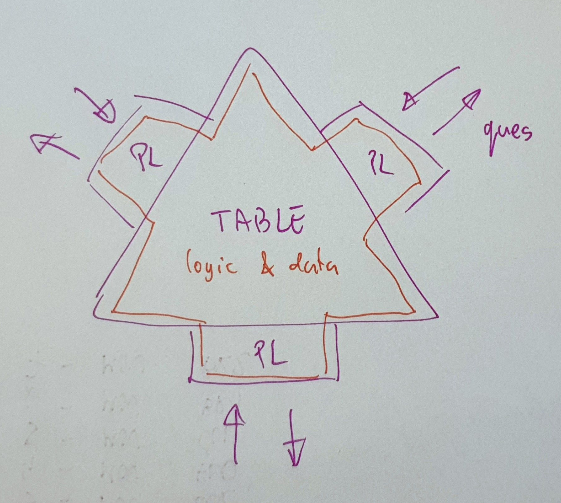 PL
PL
ques
TABLE
logic & data
PL